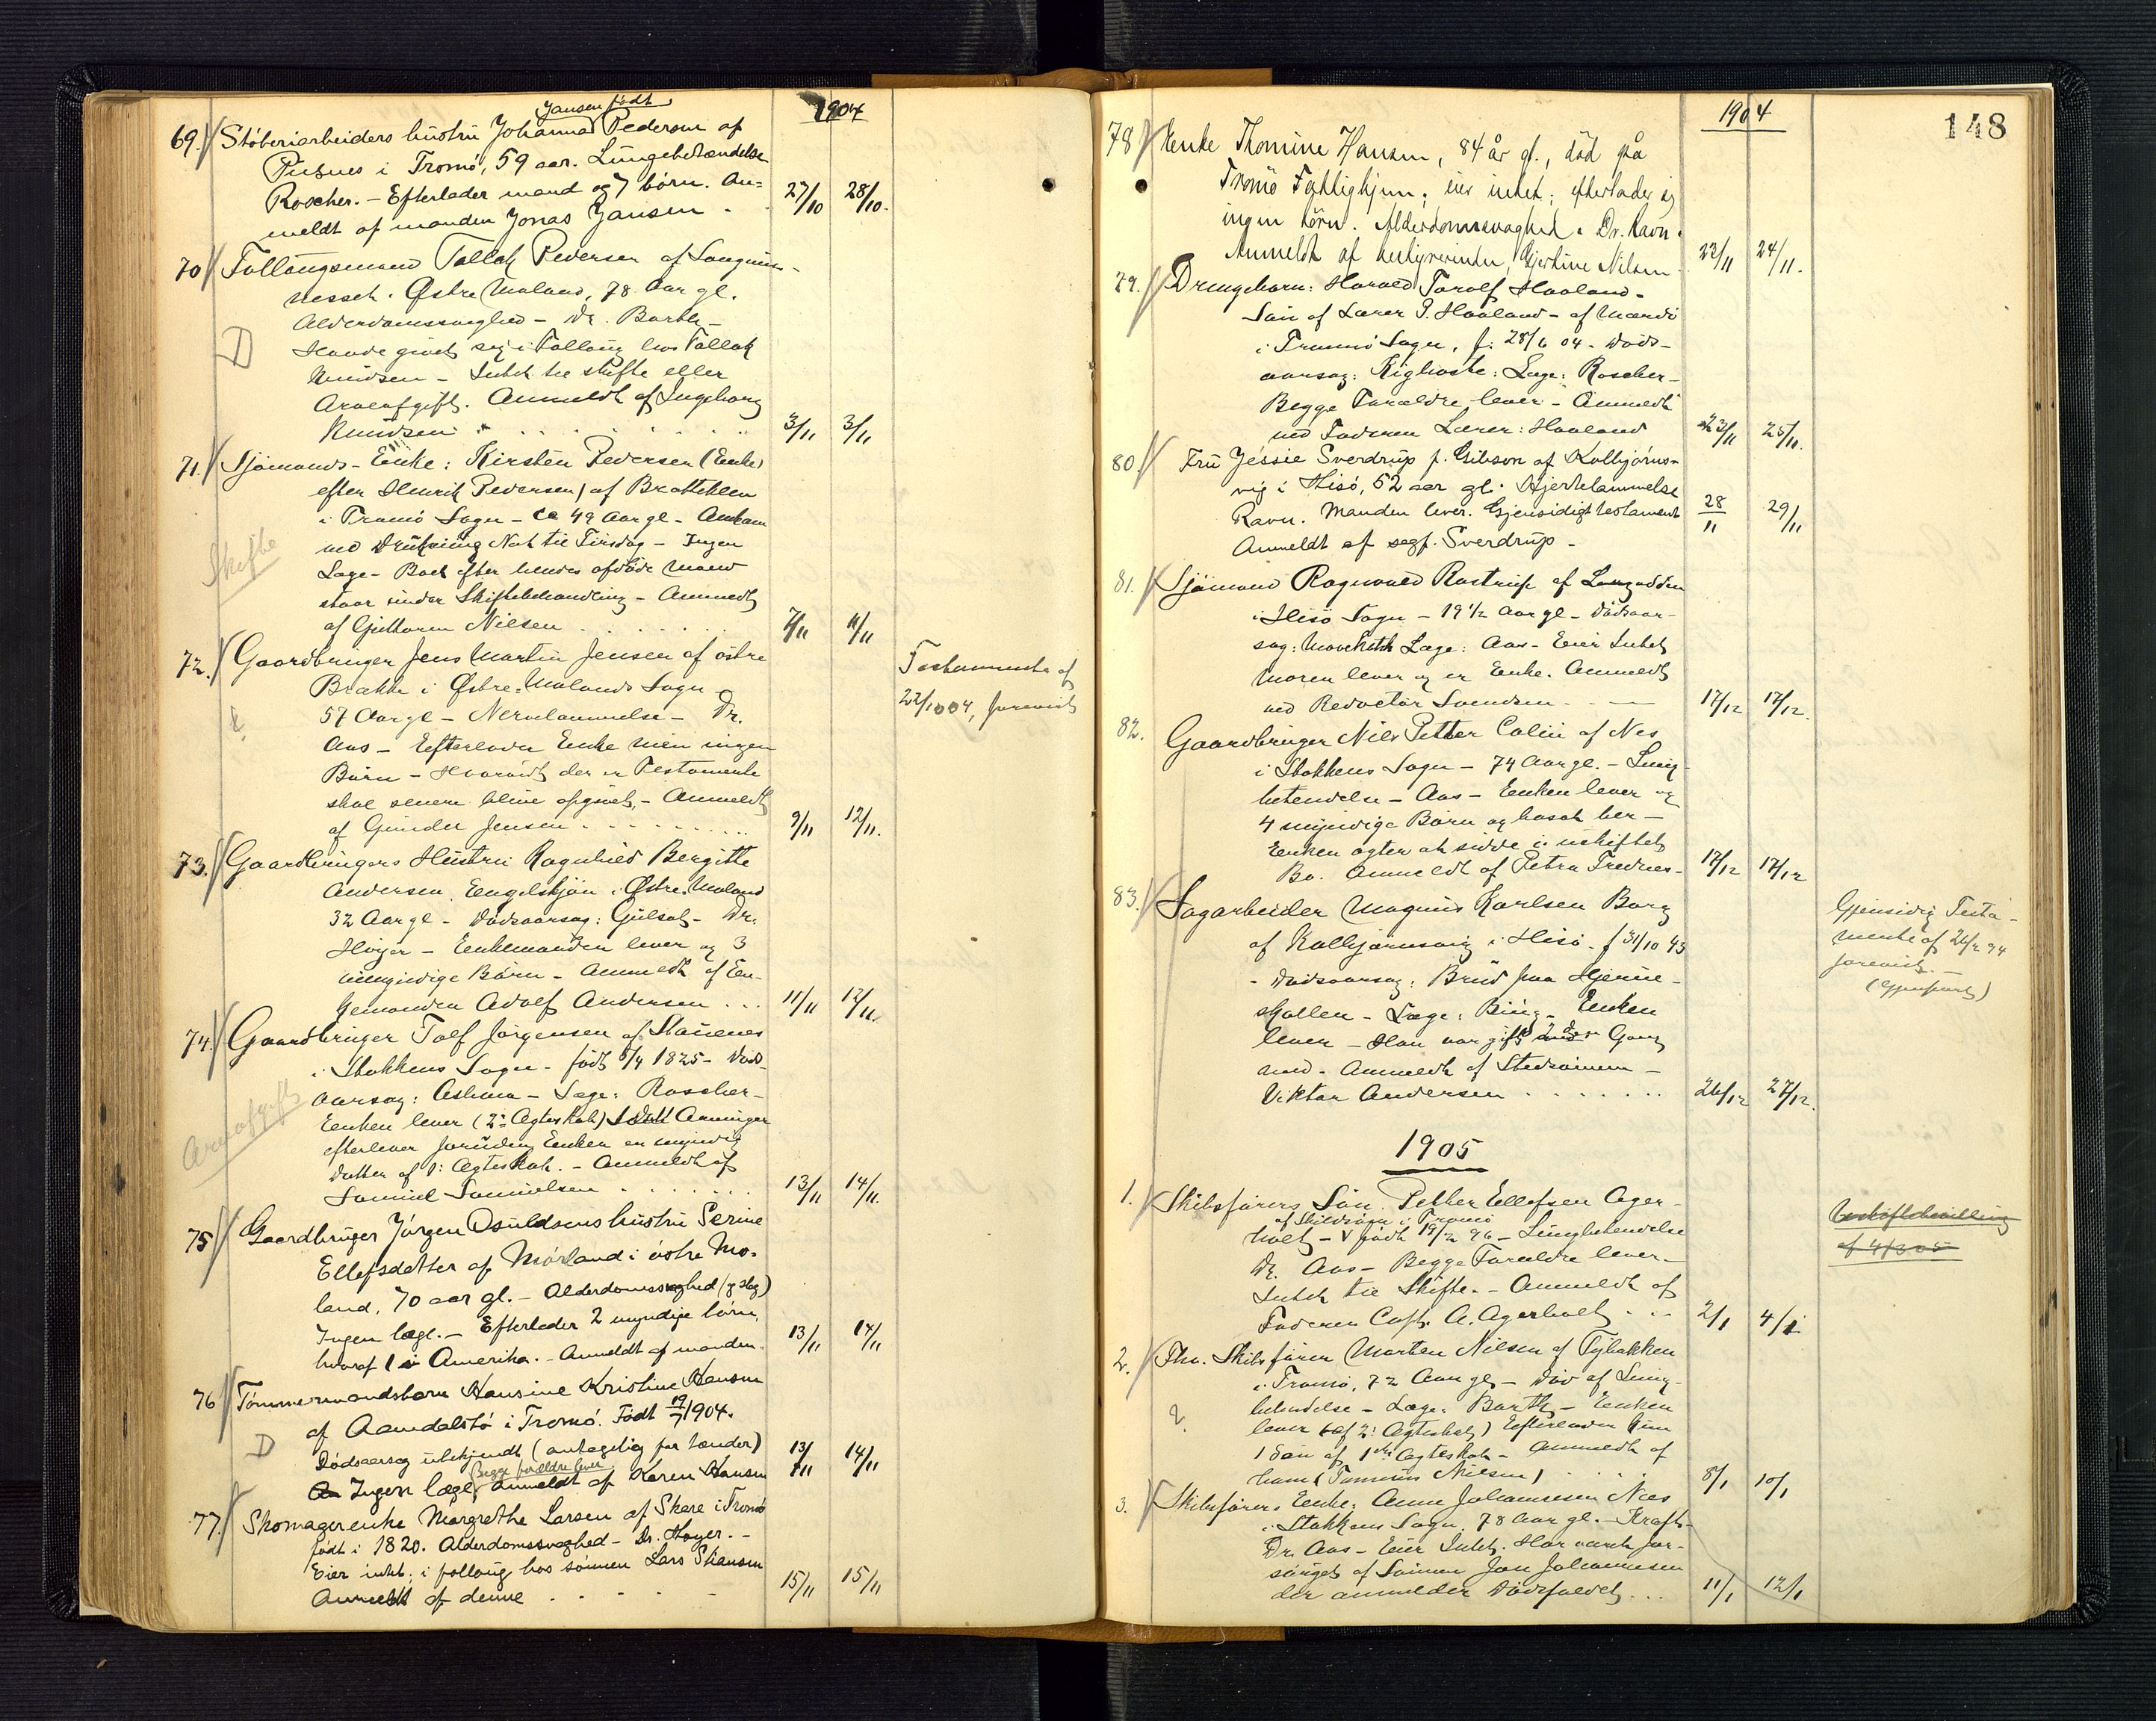 1904
Jansen født
69. Støberiarbeiders hustru Johanna Pedersen af
Pusnes i Tromø, 59 aar. Lungebetændelse
Roscher. – Efterlader mand og 7 børn. An=
meldt af manden Jonas Jansen –
27/10 28/10.
70 Follaugsmand Tallak Pedersen af
nesset. Østre Moland, 78 Aar gl.
Alderdomssvaghed – Dr. Barth –
D
Havde givet sig i Follaug hos Tallak
Knudsen – Intet til skifte eller
Arveafgift. Anmeldt af Ingeborg
Knudsen
3/11 3/11
71. Sjømands-Enke: Kirsten Pedersen (Enke
efter Henrik Pedersen) af Brattekleu
i Tromø Sogn – ca 49 Aar gl – Omkom
ved Drukning Nat til Tirsdag – Ingen
Skifte
Læge – Boet efter hendes afdøde Mand
staar under Skiftebehandling – Anmeldt
af Guttorm Nielsen
7/11 11/11
72. Gaardbruger Jens Martin Jensen af østre
Brække i Østre-Molands Sogn –
57 Aar gl – Nervelammelse – Dr.
Aas – Efterlader Enke men ingen
Børn – Hvorvidt der er Testamente
skal senere blive opgivet. – Anmeldt
af Gunder Jensen
9/11 12/11.
Testamente af
22/10 04, forevist
73. Gaardbrugers Hustru Ragnhild Bergitte
Andersen, Engelskjøn i Østre-Moland
32 Aar gl – Dødsaarsag: Gulsot – Dr.
Høyer – Enkemanden lever og 3
umyndige Børn – Anmeldt af En-
kemanden Adolf Andersen
11/11 12/11.
74. Gaardbruger Tolf Jørgensen af Stauenes
i Stokkens Sogn – født 8/4 1825 – Døds-
aarsag: Asthma – Læge: Roscher –
Enken lever (2: Ægteskab) Arvinger
Arveafgift
efterlever foruden Enken en myndig
Datter af 1: Ægteskab. – Anmeldt af
Samuel Samuelsen
13/11 14/11.
75 Gaardbruger Jørgen Osuldsens hustru Serine
Ellefsdatter af Mørland i østre Mo-
land, 70 aar gl. – Alderdomssvaghed (og slag)
Ingen læge. – Efterlader 2 myndige børn,
hvoraf 1 i Amerika. – Anmeldt af manden.
13/11 14/11
76 Tømmermandsbarn Hansine Kristine Hansen
af Aamdalstø i Tromø. Født 19/7 1904.
D
Dødsaarsag ubekjendt (antagelig før tænder)
Begge forældre lever
Ingen læge, anmeldt af Karen Hansen
13/11 14/11
77. Skomagerenke Margrethe Larsen af Skare i Tromø
født i 1820. Alderdomssvaghed – Dr. Høyer. –
Eier intet; i follaug hos sønnen Lars Skansen
Anmeldt af denne
15/11 15/11
148
1904
78 Enke Thomine Hansen, 84 år gl., død på
Tromø Fattighjem; eier intet; efterlader sig
ingen børn. Alderdomssvaghed. Dr. Ravn.
Anmeldt af bestyrerinden, Gjertine Nilsen
23/11 24/11.
79. Drengebarn: Harald Torolf Haaland –
Søn af Lærer P. Haaland – af Mærdø
i Tromø Sogn, f: 28/6 04 – Døds-
aarsag: Kighoste: Læge: Roscher –
Begge Forældre lever – Anmeldt
ved Faderen Lærer: Haaland
22/11 25/11.
80. Fru Jessie Sverdrup f. Gibson af Kolbjørns-
vig i Hisø, 52 aar gl. Hjertelammelse
Ravn. Manden lever. Gjensidigt testament
Anmeldt af sagf. Sverdrup –
28/11 29/11
81. Sjømand Ragnvald Rostrup af Langodden
i Hisø Sogn – 19 1/2 Aar gl – Dødsaar-
sag: Læge: Aas – Eier Intet
Moren lever og er Enke. Anmeldt
ved Redaktør Svendsen
17/12 17/12.
82. Gaardbruger Nils Petter Colin af Nes
i Stokkens Sogn – 74 Aar gl. – Lung-
betendelse – Aas – Enken lever og
4 myndige Børn og bosat her –
Enken agter at sidde i uskiftet
Bo. Anmeldt af Petra
17/12 17/12
83. Sagarbeider Magnus Karlsen Borg
af Kolbjørnsvig i Hisø – f 31/10 43
– Dødsaarsag: Brud paa Hjerne-
skallen – Læge: Bing – Enken
lever – Han var gift 2den Gang
med – Anmeldt af Stedsønnen –
Viktor Andersen
26/12 27/12.
Gjensidig Testa-
mente af 26/2 94
forevist. –
(Gjenpart)
1905
1. Skibsførers Søn Petter Ellefsen Ager-
af Skilsøen i Tromø
holt – født 19/2 96 – Lungbetendelse
Dr. Aas – Begge Forældre lever –
Intet til Skifte. – Anmeldt af
Faderen Capt. A. Agerholt
2/1 4/1
Uskiftebevilling
af 4/3 05
2. Fhv. Skibsfører Morten Nilsen af Tybakken
i Tromø, 72 Aar gl – Død af Lung-
betendelse – Læge: Barth – Enken
lever (af 2: Ægteskab) Efterlader kun
1 Søn af 1ste Ægteskab – Anmeldt af
ham ( Nielsen)
8/1 10/1
3. Skibsførers Enke: Anne Johannesen Næs
i Stokkens Sogn, 78 Aar gl. – Kræft –
Dr. Aas – Eier Intet. Har været for-
sørget af Sønnen Jan Johannesen
der anmelder Dødsfaldet
11/1 12/1